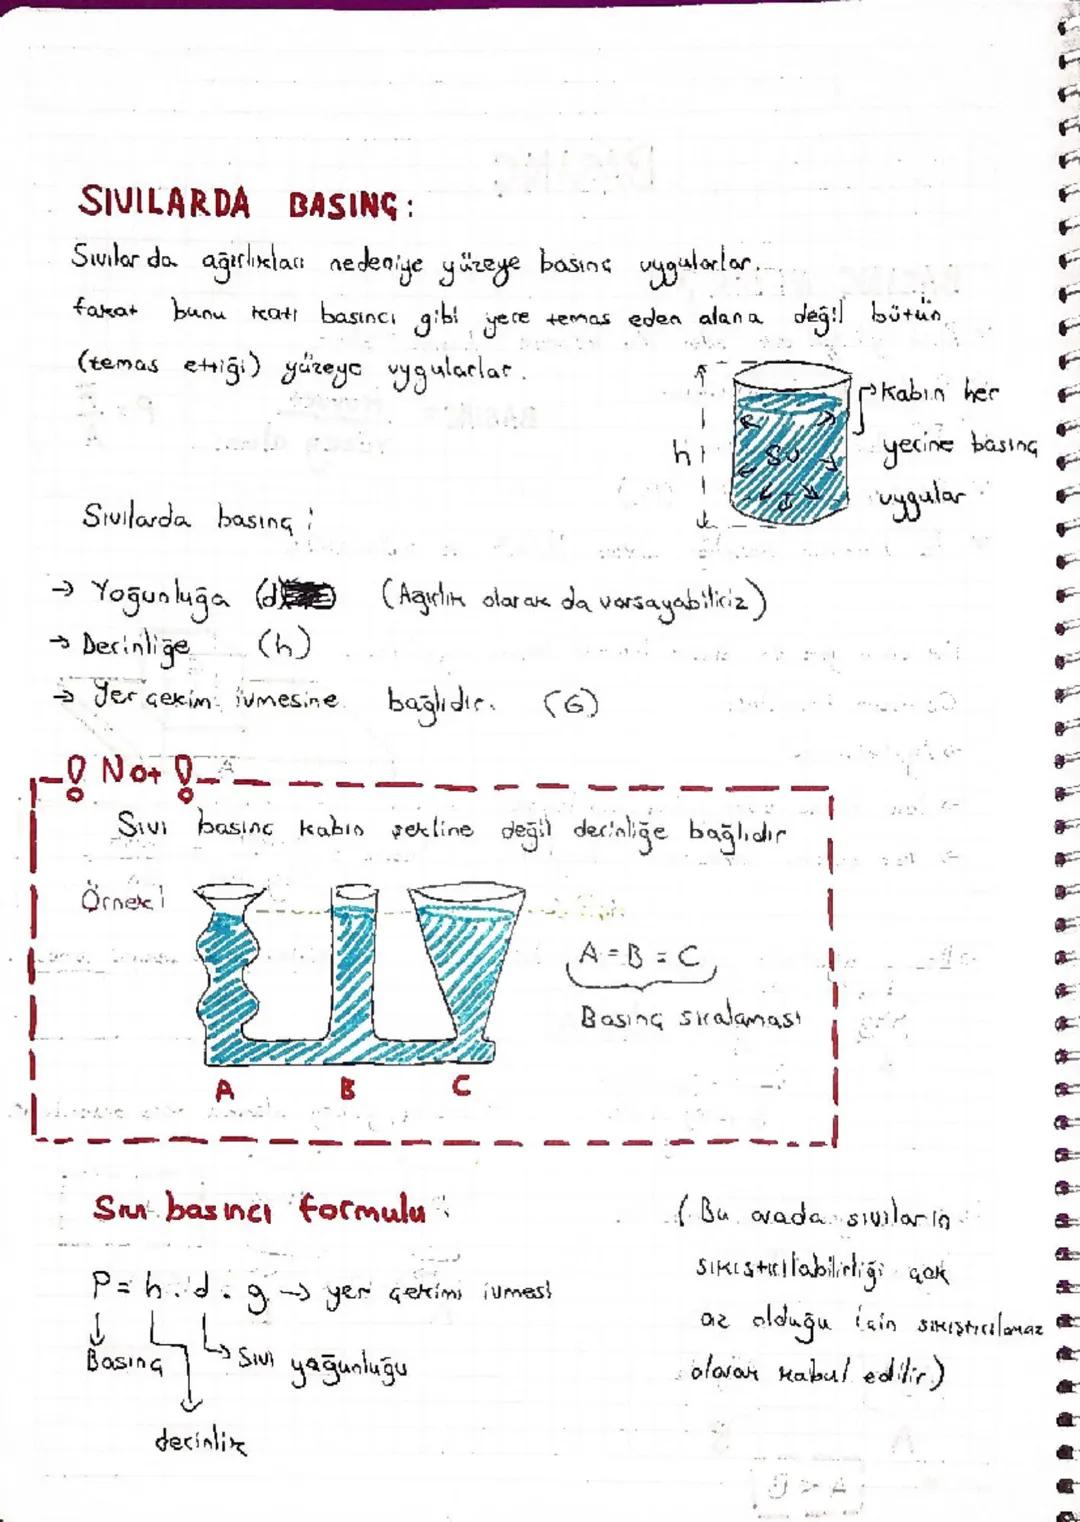 SIVILARDA BASINÇ:
Sıvılar da ağırlıkları nedeniye yüzeye basınç uygularlar.
fakat bunu katı basıncı gibi yere temas eden alana değil bütün
(temas ettiği) yüzeye uygularlar.
Kabın her
yerine basınç
uygular
h
SU
Sıvılarda basınç :
→ Yoğunluğa (d) (Ağırlık olarak da varsayabiliriz)
→ Derinliğe (h)
→ Yer çekim ivmesine bağlıdır. (G)
! Not !
Sıvı basınç kabın şekline değil derinliğe bağlıdır
Örnek!
A = B = C
Basınç sıralaması
A B C
Sıvı basıncı formulu :
P = h . d . g → yer çekimi ivmesi
Basınç
Sıvı yağunluğu
derinlik
( Bu arada sıvıların
sıkıştırılabilirliği çok
az olduğu için sıkıştırılamaz
olarak kabul edilir.)